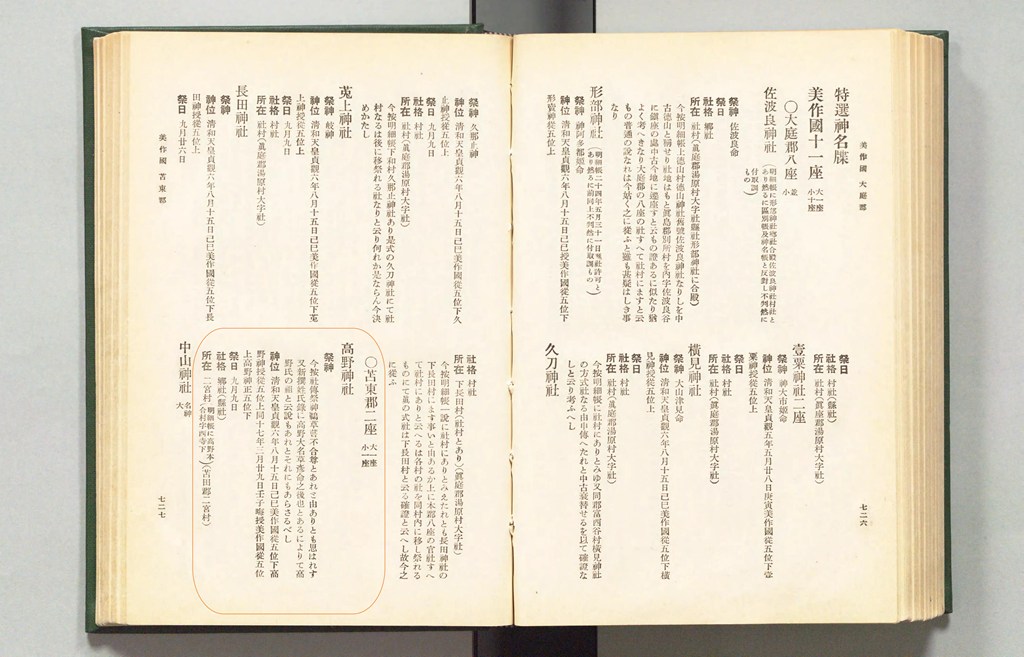 美作國 大庭郡
特選神名牒
美作國十一座 大一座 小十座
〇大庭郡八座 並小
佐波良神社
祭神 佐波良命
祭日
社格 郷社
所在 社村(眞庭郡湯原村大字社縣社形部神社に合殿)
今按明細帳上德山村德山神社舊號佐波良神社なりしを中
古德山と稱せり社地はもと眞島郡別所村を內字佐波良谷
に鎭座の處中古今地に遷座すと云もの證あるに似たり猶
よく考へきなり大庭郡の八座の社すへて社村にますと云
もの普通の說なれは今姑く之に從ふと雖も甚疑はしき事
なり
形部神社
祭神 神阿多都姬命
神位 清和天皇貞觀六年八月十五日己巳授美作國從五位下
形賣神從五位上
祭日
社格 村社(縣社)
所在 社村(眞庭郡湯原村大字社)
壹粟神社二座
祭神 神大市姬命
神位 清和天皇貞觀五年五月廿八日庚寅美作國從五位下壹
粟神授從五位上
祭日
社格 村社
所在 社村(眞庭郡湯原村大字社)
橫見神社
祭神 大山津見命
神位 清和天皇貞觀六年八月十五日己巳美作國從五位下橫
見神授從五位上
祭日
社格 村社
所在 社村(眞庭郡湯原村大字社)
今按明細帳に社村にありとみゆ又同郡富西谷村橫見神社
の方式社なる由申傳へたれと中古衰替せるを以て確證な
しと云り考ふへし
久刀神社
七二六
祭神 久那止神
神位 清和天皇貞觀六年八月十五日己巳美作國從五位下久
止神授從五位上
祭日 九月九日
社格 村社
所在 社村(眞庭郡湯原村大字社)
今按明細帳下和村久那止神社あり是式の久刀神社にて社
村なるは後に移祭れる社なりと云り何れか是ならん今決
めかたし
菟上神社
祭神 岐神
神位 清和天皇貞觀六年八月十五日己巳美作國從五位下菟
上神授從五位上
祭日 九月九日
社格 村社
所在 社村(眞庭郡湯原村大字社)
長田神社
祭神
神位 清和天皇貞觀六年八月十五日己巳美作國從五位下長
田神授從五位上
祭日 九月廿六日
美作國 苫東郡
社格 村社
所在 下長田村(社村とあり)(眞庭郡湯原村大字社)
今按明細帳一說に社村にありとみえたれとも長田神社の
下長田村にます事いと由あるか上に本郡八座の官社すへ
て社村にありと云へるは各村の社を同村內に移し祭れる
ものにて眞の式社は下長田村と云る確證と云へし故今之
に從ふ
〇苫東郡二座 大一座 小一座
高野神社
祭神
今按社傳祭神鵜草葺不合尊とあれと由ありとも思はれす
又新撰姓氏錄に高野大名草彥命之後也とあるによりて高
野氏の祖と云說もあれとそれにもあらさるへし
神位 清和天皇貞觀六年八月十五日己巳美作國從五位下高
野神授從五位上同十七年三月廿九日壬子晦授美作國從五位
上高野神正五位下
祭日 九月九日
社格 鄉社(縣社)
所在 二宮村(明細帳に高野本合村字西寺下)(苫田郡二宮村)
中山神社 名神大
七二七